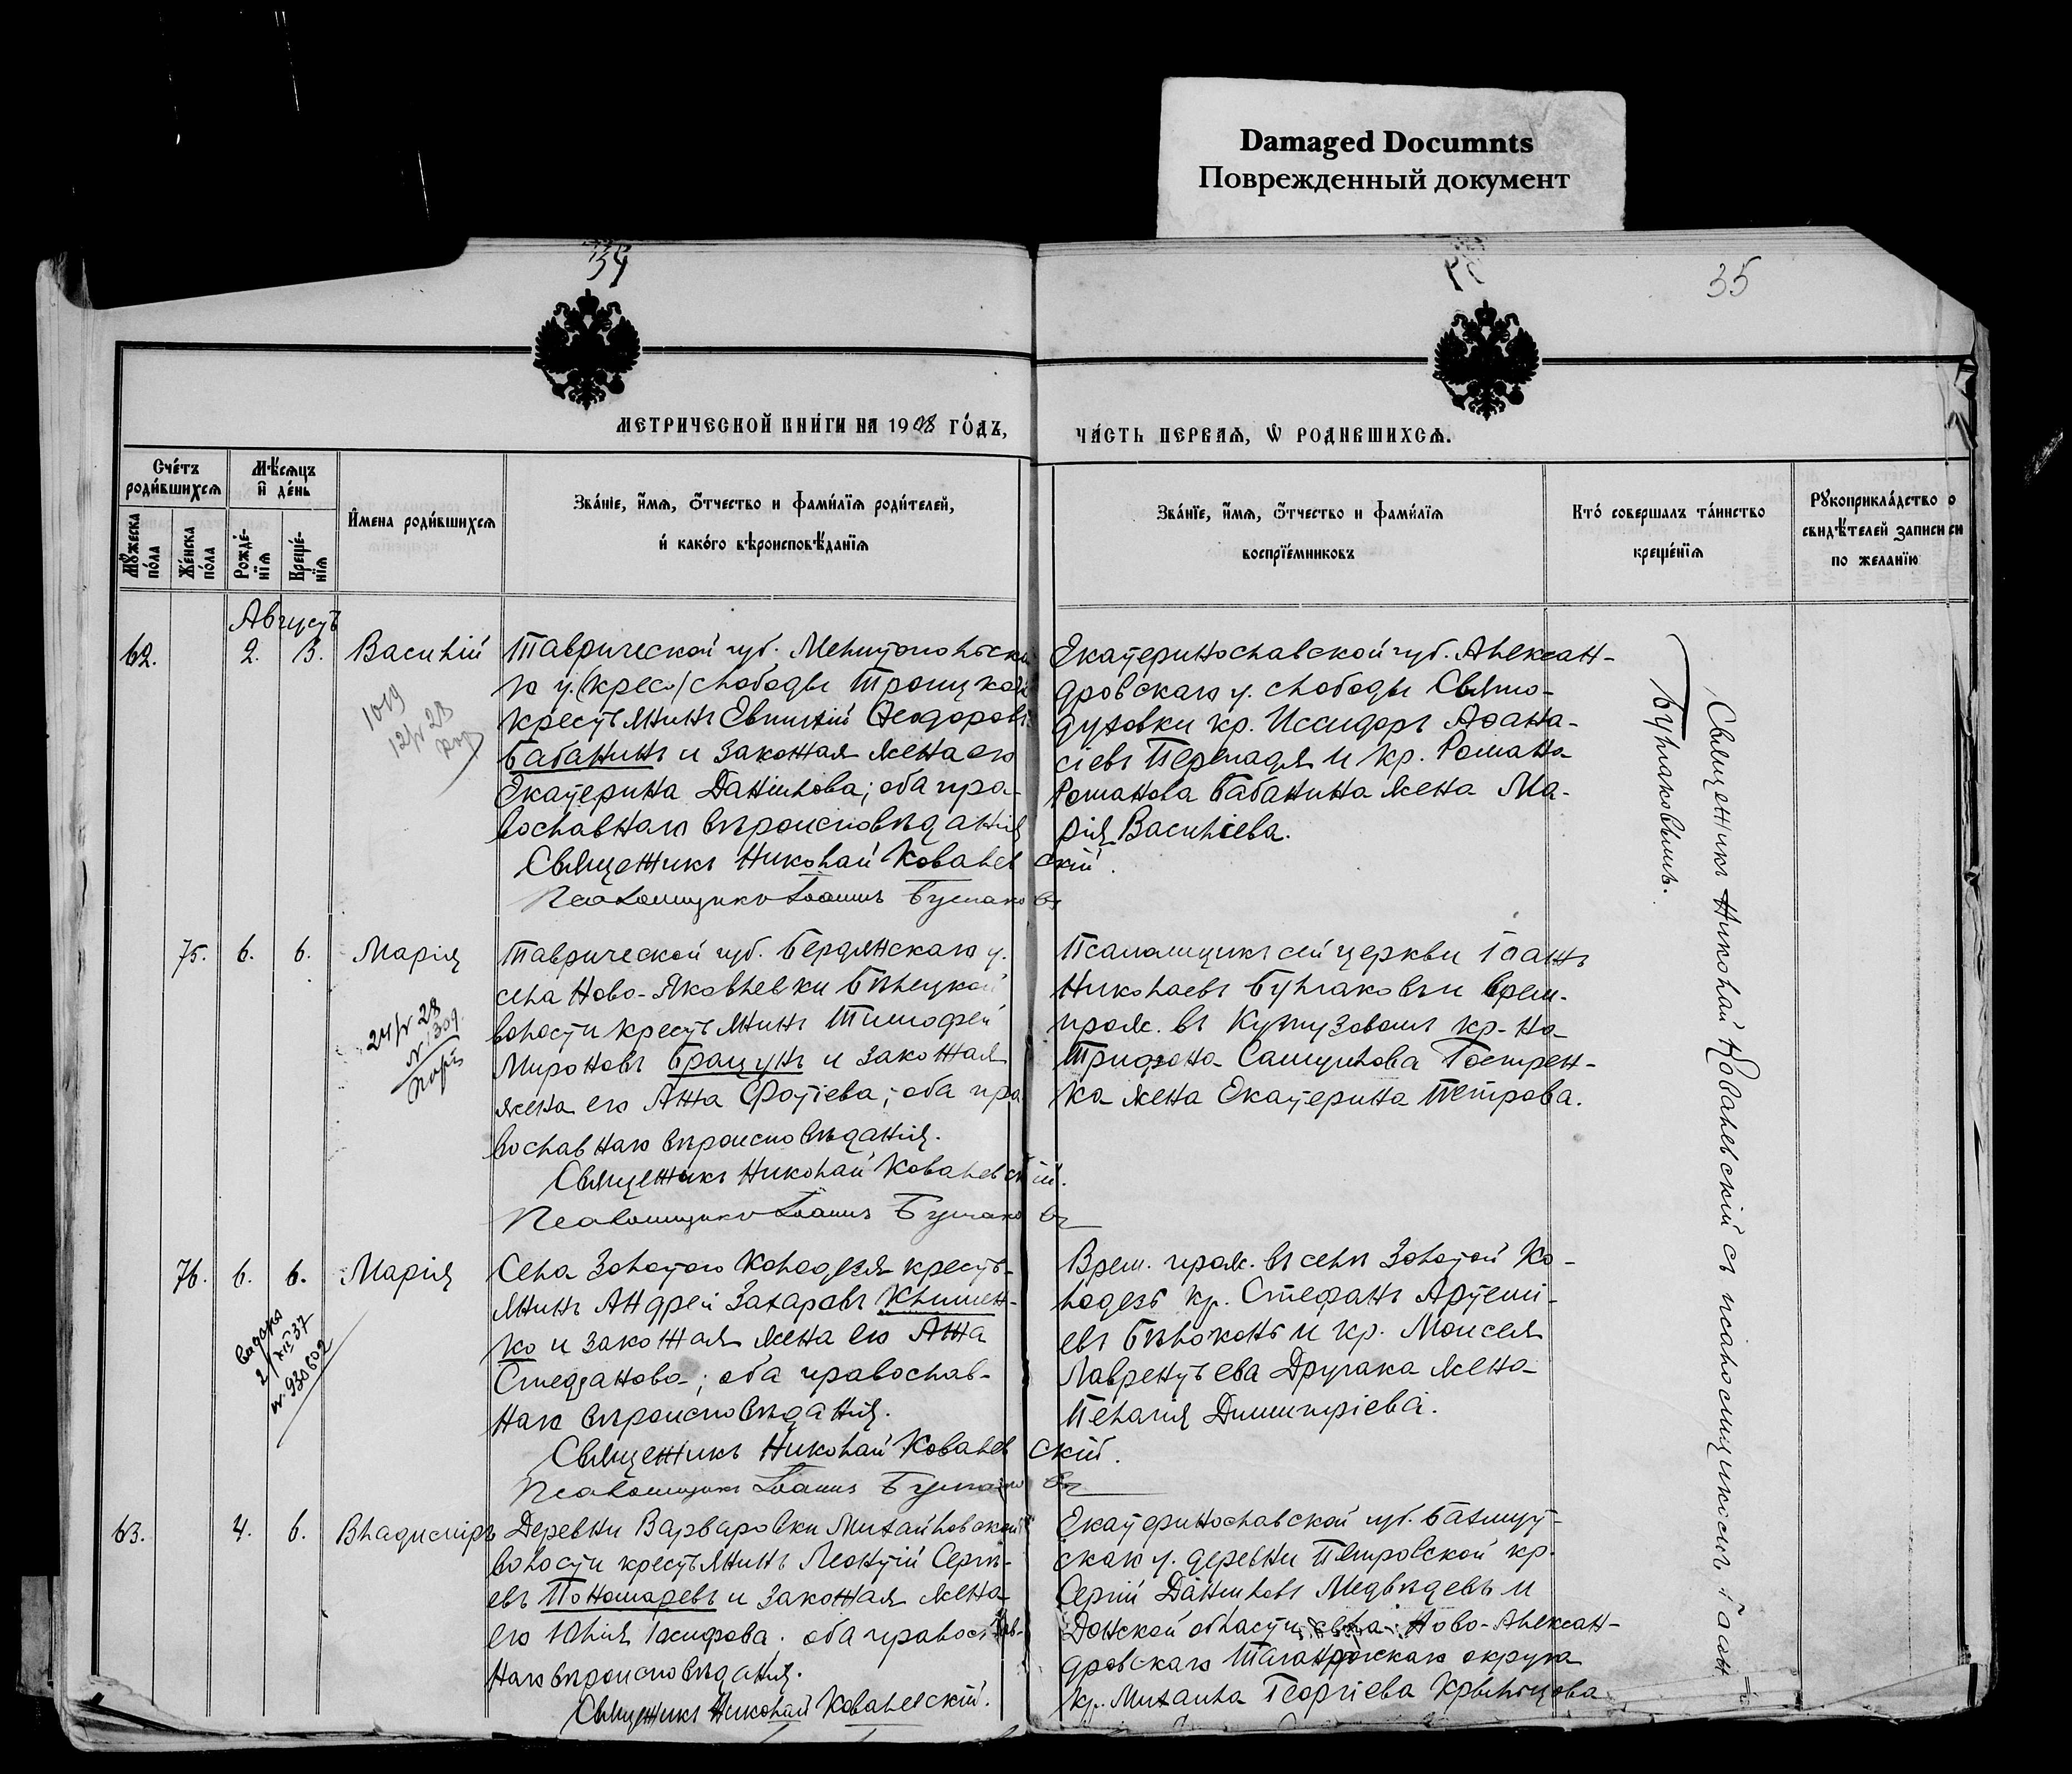 Damaged Documnts
Поврежденный документ
34
35
МЕТРИЧЕСКОЙ КНИГИ НА 1908 ГОДЪ,
ЧАСТЬ ПЕРВАЯ, Ѡ РОДИВШИХСЯ.
Счетъ родившихся
Мѣсяцъ и день
Имена родившихся
Званіе, имя, отчество и фамилїя родителей,
и какого вѣроисповѣданїя
Мужеска пола
Женска пола
Рожденїя
Крещенїя
Званїе, имя, отчество и фамилїя
воспрїемниковъ
Кто совершалъ таинство
крещенїя
Рукоприкладство
свидѣтелей записи
по желанїю
Августъ
62. 2. 3. Василій
Таврической губ. Мелитопольска
го у. (крес) слободы Троицкой
крестьянинъ Евпилій Ѳеодоровъ
Бабанинъ и законная жена его
Екатерина Даніилова; оба пра-
вославнаго вѣроисповѣданія
Священникъ Николай Ковалевскій.
Псаломщикъ Іоаннъ Булгаковъ
Екатеринославской губ. Алексан-
дровскаго у. слободы Свято-
духовки кр. Исидоръ Аѳана-
сіевъ Перепадя и кр. Романа
Романова Бабанина жена Ма-
рія Васильева.
75. 6. 6. Марія
24/V 28
Таврической губ. Бердянскаго у.
села Ново-Яковлевки Бѣлецкой
волости крестьянинъ Тимофей
Мироновъ Брацунъ и законная
жена его Анна Фотіева; оба пра
вославнаго вѣроисповѣданія.
Священникъ Николай Ковалевскій.
Псаломщикъ Іоаннъ Булгаковъ
Псаломщикъ сей церкви Іоаннъ
Николаевъ Булгаковъ и врем.
прож. въ Кутузовомъ кр-на
Трифона Самуилова Гостren-
ка жена Екатерина Петрова.
76. 6. 6. Марія
видано
2/XII 37
№ 930602
Села Золотого Колодезя кресть-
янинъ Андрей Захаровъ Климен-
ко и законная жена его Анна
Стефанова; оба православ-
наго вѣроисповѣданія.
Священникъ Николай Ковалевскій.
Псаломщикъ Іоаннъ Булгаковъ
Врем. прож. въ селѣ Золотой Ко-
лодезь кр. Стефанъ Артемі-
евъ Бѣлоконь и кр. Моисея
Лаврентьева Друпака жена
Пелагія Димитріева.
63. 4. 6. Владиміръ
Деревни Варваровки Михайловской
волости крестьянинъ Леонтій Сергѣ-
евъ Пономаревъ и законная жена
его Юлія Іосифова. оба православ-
наго вѣроисповѣданія.
Священникъ Николай Ковалевскій.
Екатеринославской губ. Бахмут-
скаго у. деревни Петровской кр.
Сергій Даниловъ Медвѣдевъ и
Донской области села Ново-Алексан-
дровскаго Таганрогскаго округа
кр. Михаила Георгіева Крыльцова
Священникъ Николай Ковалевскій съ псаломщикомъ Іоан=
Булгаковымъ.